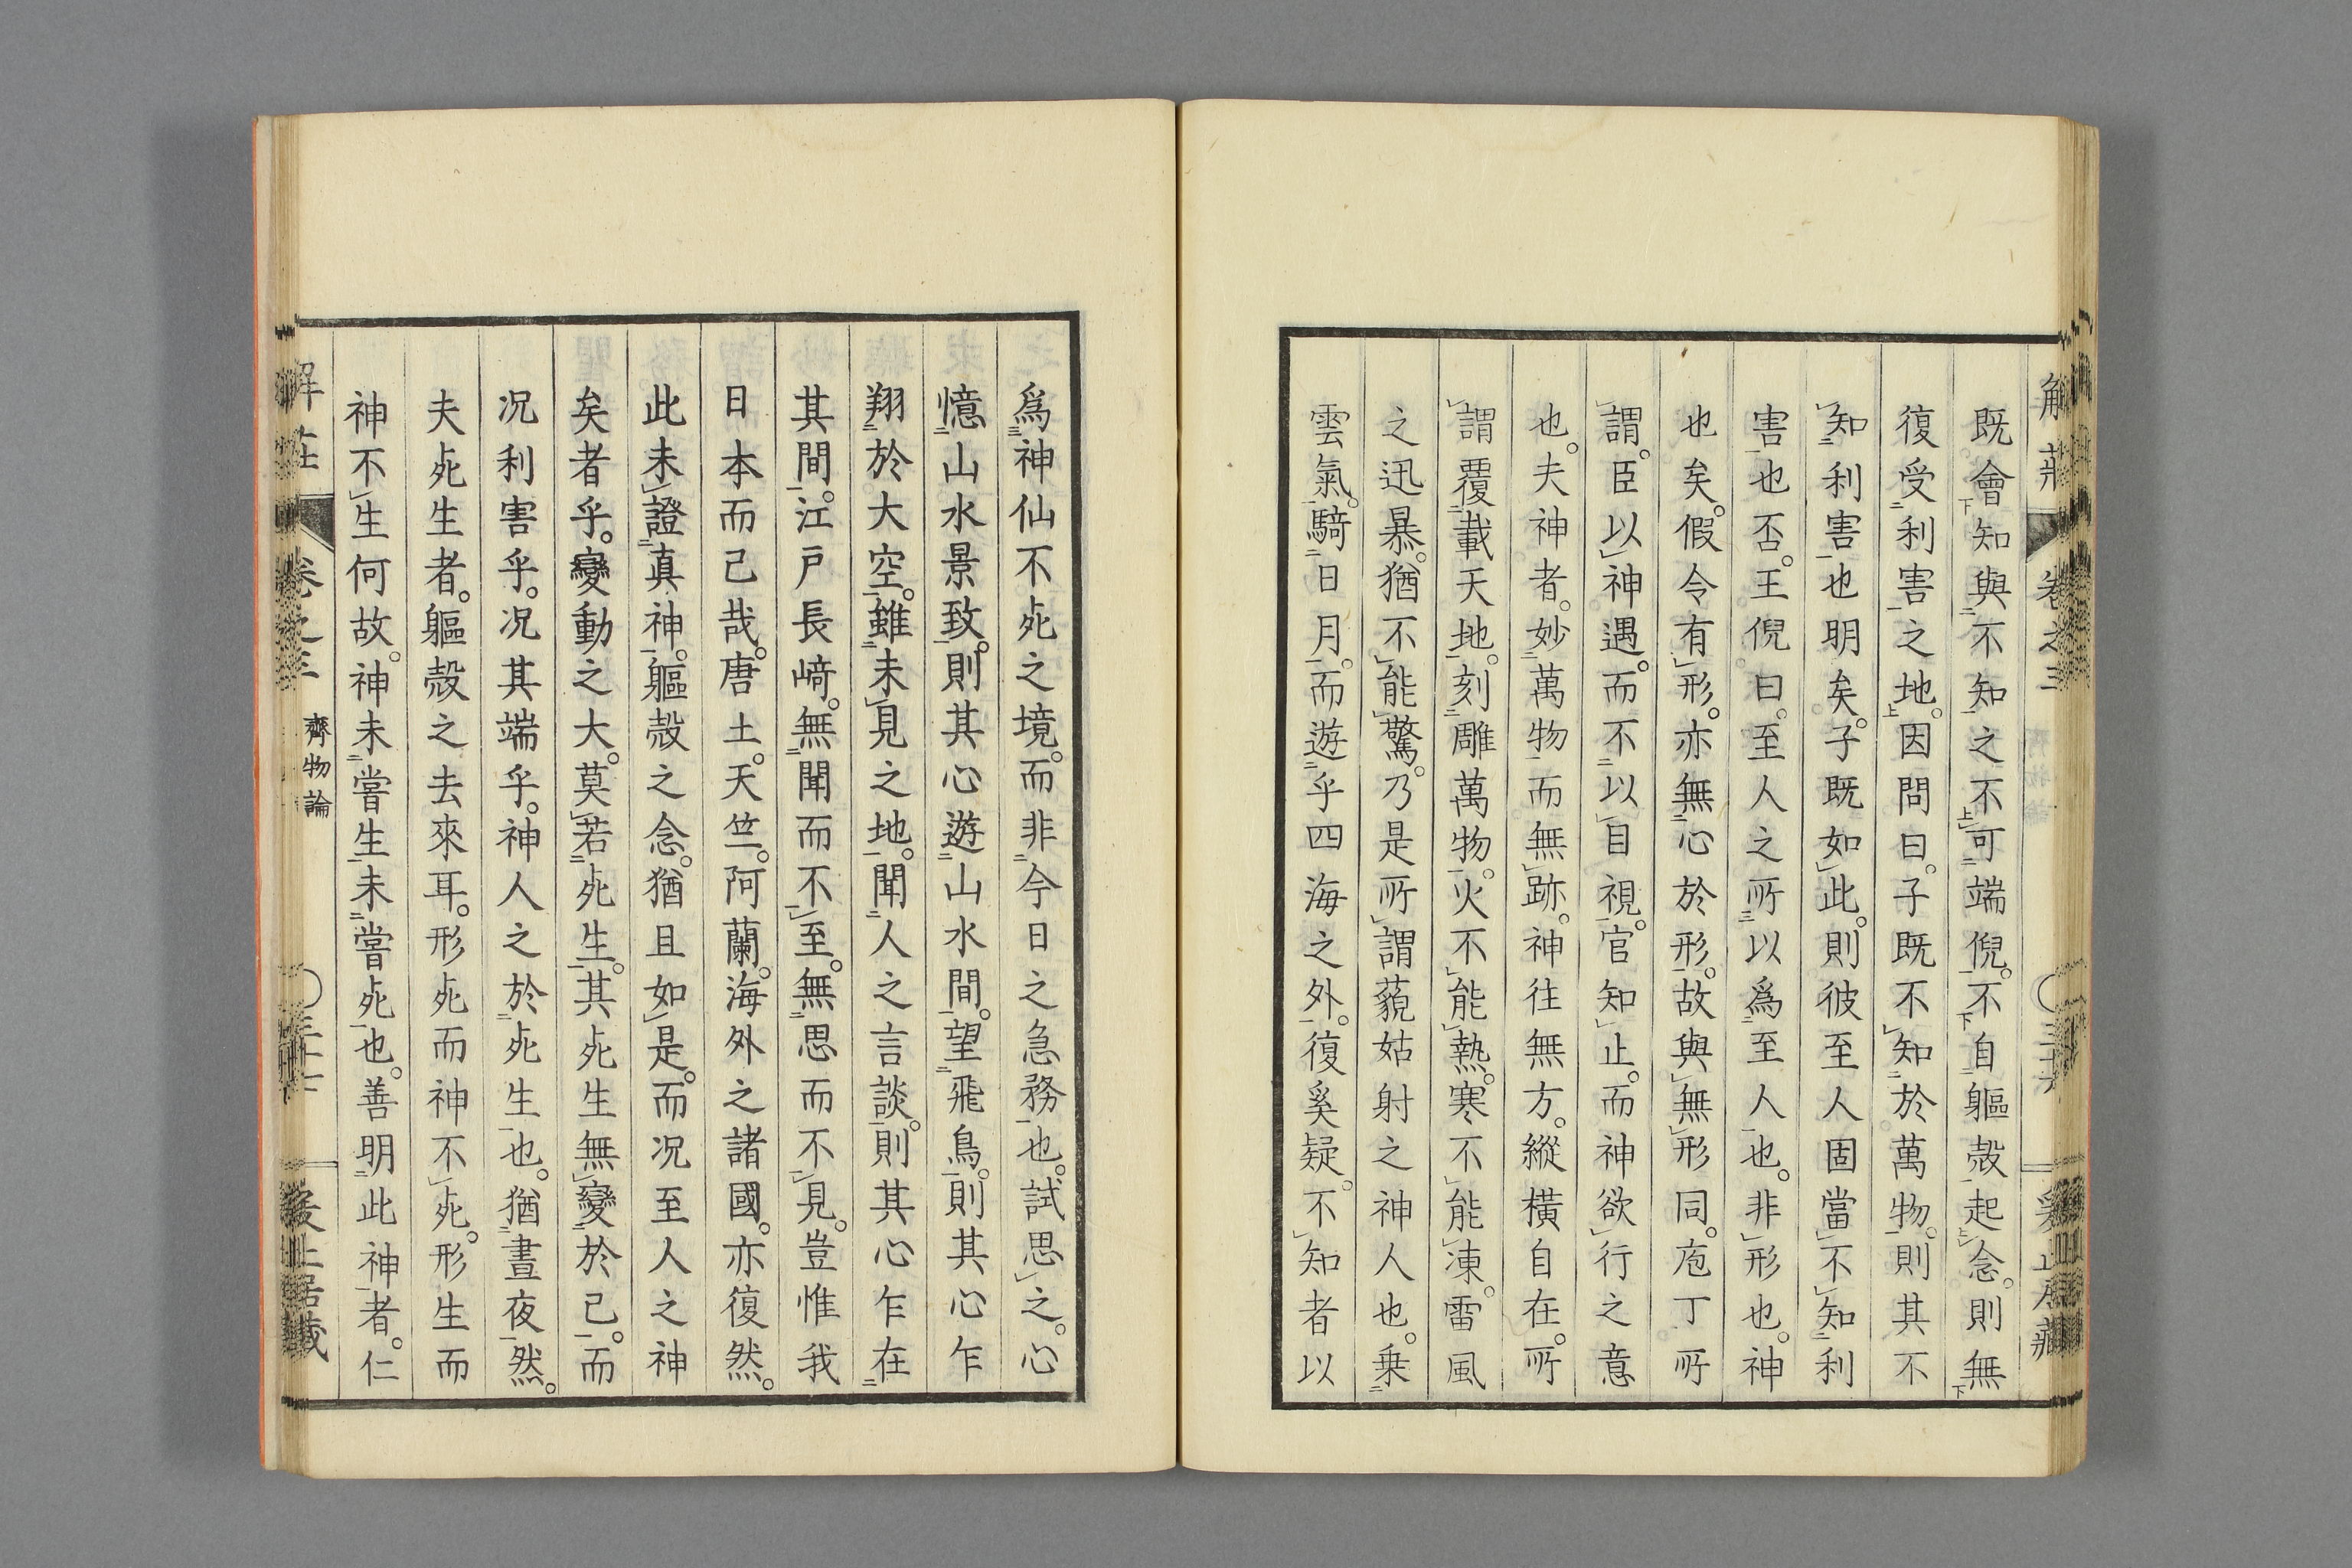 解莊
卷之三
既會知與不知之不可端倪。不自軀殼起念。則無
復受利害之地。因問曰。子既不知於萬物。則其不
知利害也明矣。子既如此。則彼至人固當不知利
害也否。王倪曰。至人之所以爲至人也。非形也。神
也矣。假令有形。亦無心於形。故與無形同。庖丁所
謂。臣以神遇。而不以目視。官知止。而神欲行之意
也。夫神者。妙萬物而無跡。神往無方。縱橫自在。所
謂覆載天地。刻雕萬物。火不能熱。寒不能凍。雷風
之迅暴。猶不能驚。乃是所謂藐姑射之神人也。乗
雲氣。騎日月。而遊乎四海之外。復奚疑。不知者以
爲神仙不死之境。而非今日之急務也。試思之。心
憶山水景致。則其心遊山水間。望飛鳥。則其心乍
翔於大空。雖未見之地。聞人之言談。則其心乍在
其間。江戸長﨑。無聞而不至。無思而不見。豈惟我
日本而己哉。唐土。天竺。阿蘭。海外之諸國。亦復然。
此未證真神。軀殼之念。猶且如是。而況至人之神
矣者乎。變動之大。莫若死生。其死生無變於己。而
况利害乎。况其端乎。神人之於死生也。猶晝夜然。
夫死生者。軀殼之去來耳。形死而神不死。形生而
神不生何故。神未嘗生未嘗死也。善明此神者。仁
卷之三
齊物論